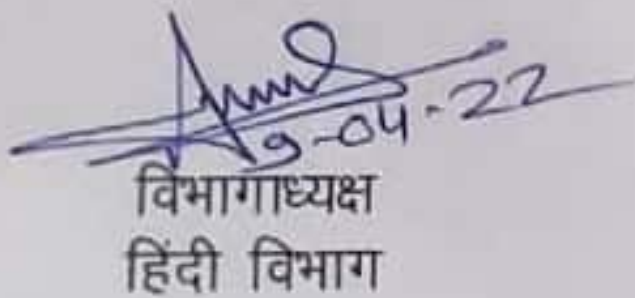 9-04-22
विभागाध्यक्ष
हिंदी विभाग